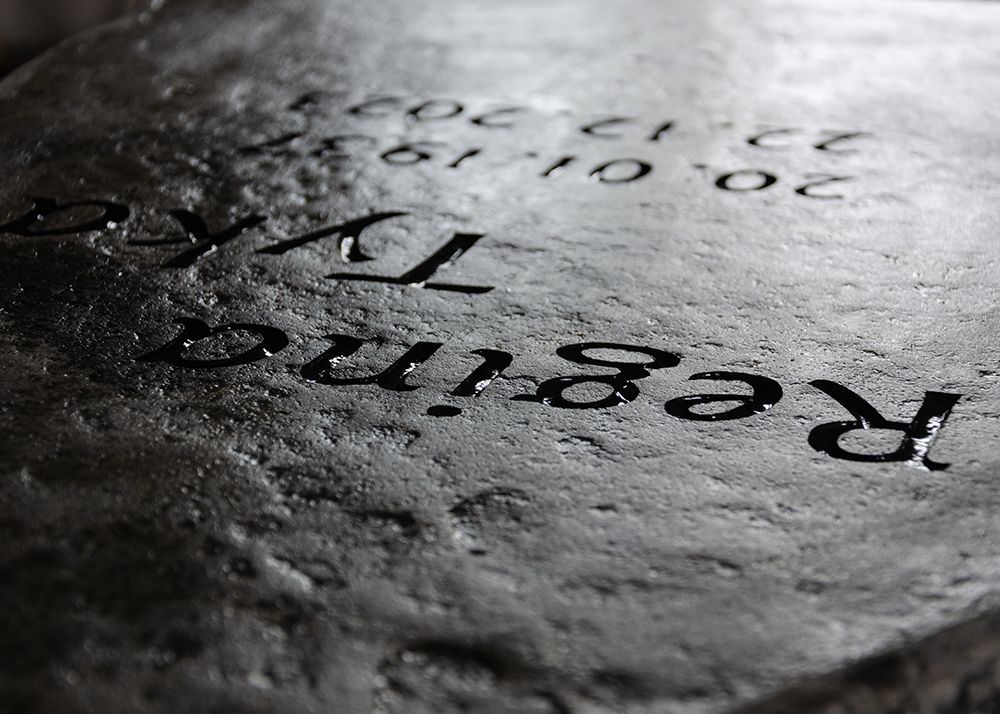 Regina
Tyka
20. 01. 1937
22. 12. 2023